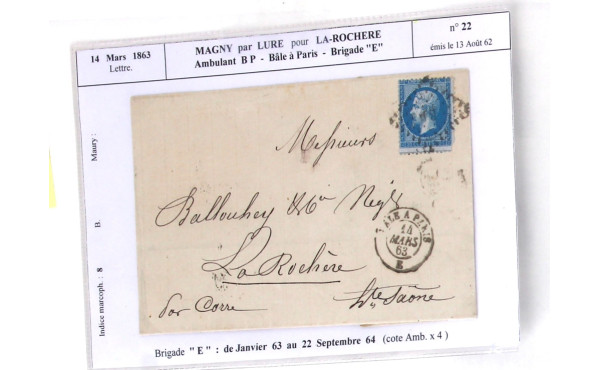 14 Mars 1863
Lettre.
MAGNY par LURE pour LA-ROCHERE
Ambulant B P - Bâle à Paris - Brigade "E"
n° 22
émis le 13 Août 62
Maury :
B.
Indice marcoph. : 8
Messieurs
Ballouhey &
La Rochère
par Corre
Hte Saône
BALE A PARIS
14
MARS
63
E
Brigade "E" : de Janvier 63 au 22 Septembre 64 (cote Amb. x 4 )